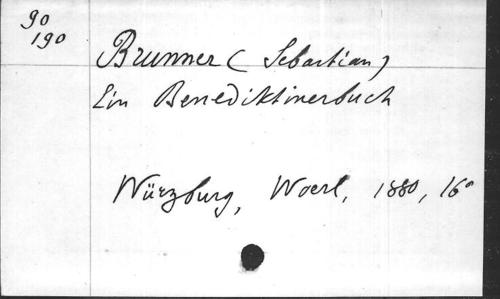 90
190
Brunner (Sebastian)
Ein Benediktinerbuch
Würzburg, Woerl, 1880, 16°